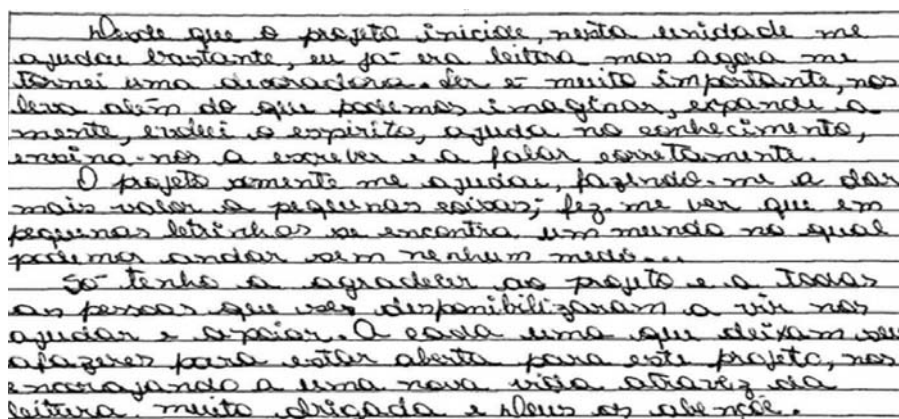 Desde que o projeto iniciou, nesta unidade me
ajudou bastante, eu já era leitora mas agora me
tornei uma devoradora. Ler é muito importante, nos
leva além do que podemos imaginar, expande a
mente, evolui o espirito, ajuda no conhecimento,
ensina-nos a escrever e a falar corretamente.
O projeto somente me ajudou, fazendo-me a dar
mais valor a pequenas coisas; fez-me ver que em
pequenas letrinhas se encontra um mundo no qual
podemos andar sem nenhum medo...
Só tenho a agradecer ao projeto e a todas
as pessoas que se disponibilizaram a vir nos
ajudar e apoiar. A cada uma que deixam seus
afazeres para estar aberta para este projeto, nos
encorajando a uma nova visão atravéz da
leitura muito obrigada e Deus os abençõe